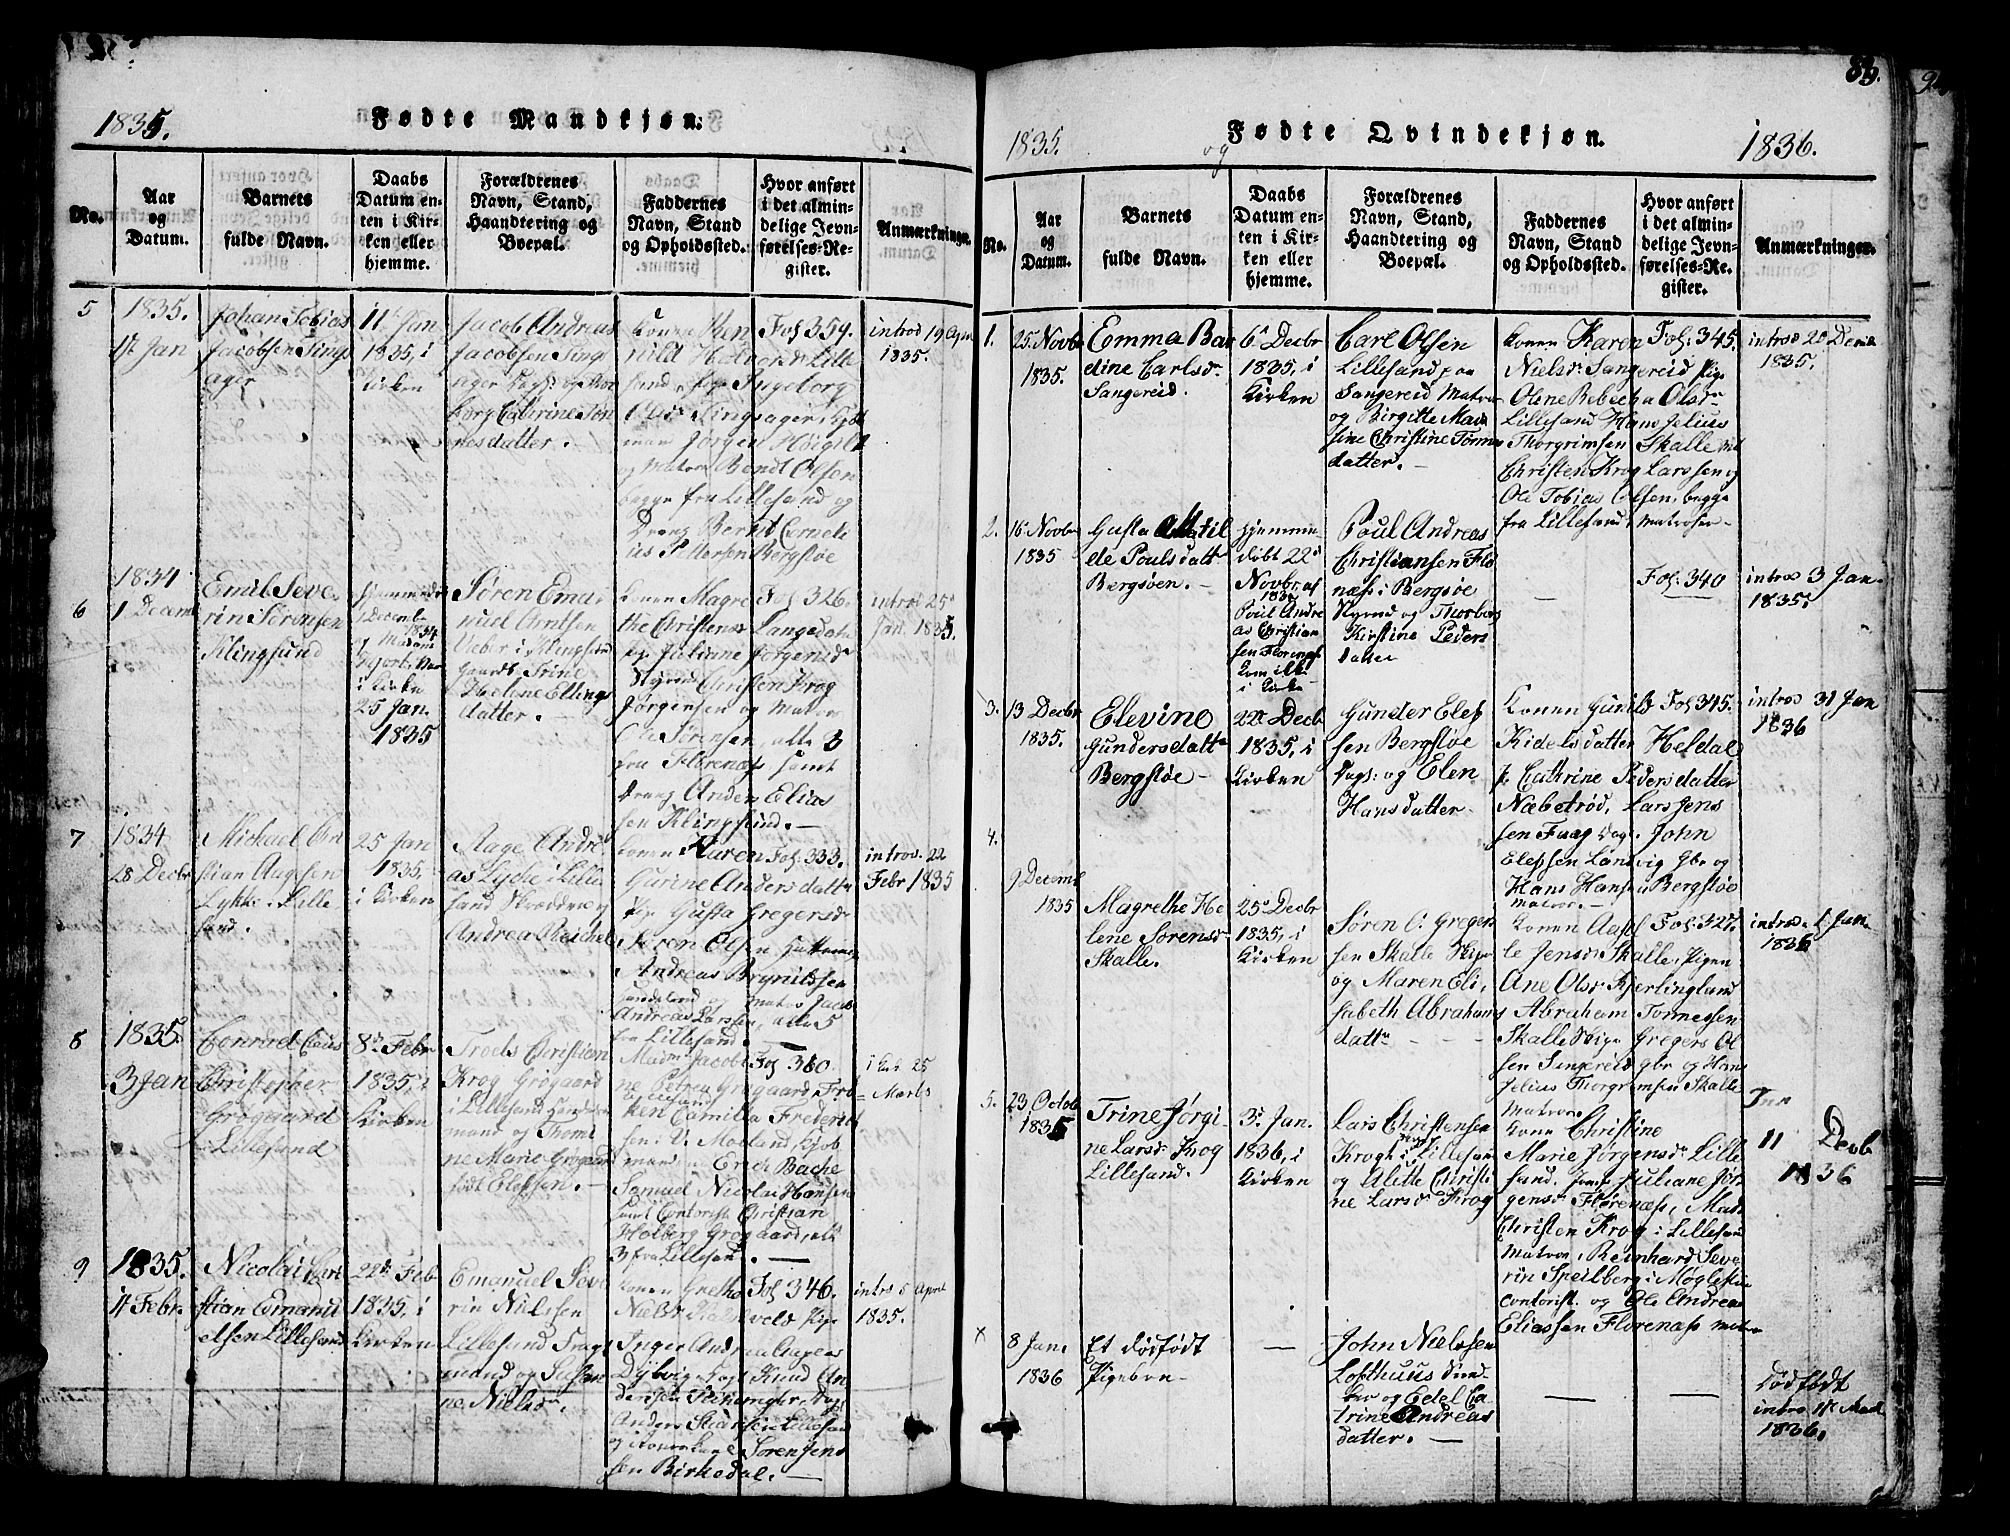 1835.
Fødte Mandkjøn.
No.
Aar
og
Datum.
Barnets
fulde Navn.
Daabs
Datum en-
ten i Kir-
ken eller
hjemme.
Forældrenes
Navn, Stand,
Haandtering og
Boepæl.
Faddernes
Navn, Stand
og Opholdssted.
Hvor anført
i det almin-
delige Jevn-
førelses-Re-
gister.
Anmærkninger.
5
1835.
Jan
Johan Tobias
Jacobsen Tings
ager
11te Jan
1835, i
Kirken
Jacob Andreas
Jacobsen Tings
ager
Cathrine Tøn
nesdatter.
Konen
Lille
sand, Pige Ingeborg
Olsdr Tingsager
Jørgen
og Matros Bendt Olsen
begge fra Lillesand og
Dreng Bernt Corneli
us Pettersen Bergsøe
Fol 359.
introd 19 Apr
1835.
6
1834
1 Decem
Emil Seve
rin Sørensen
Klingsund
Decemb
1834
i Kirke
25 Jan.
1835
Søren Ema
nuel Arntsen
Klingsund
Trine
Helene Ellings
datter.
Konen Magre
the Christensd Langedahl
Juliane Jørgensd
Christen Krog
Jørgensen og Matros
Ole Sørensen, alle 3
fra Florenæs samt
Dreng Anders Elias
sen Klingsund.
Fol 326.
introd 25
Jan. 1835.
7
1834
28 Decbr
Mickael Chri
stian Aagesen
Lykke, Lille
sand.
25 Jan
1835,
i Kirken
Aage Andre
as Lycke i Lille
sand Skrædder og
Andrea Reichel
Konen Karen
Gurine Anders datter
Pige Gusta Gregersd
Søren Olsen
Andreas Brynildsen
og Matros Jacob
Andreas Larsen, alle 5
fra Lillesand.
Fol. 333.
introd. 22
Febr 1835
8
1835.
3 Jan
Conrad Claus
Christopher
Grøgaard
Lillesund
8de Febr
1835, i
Kirken
Troels Christian
Krog Grøgaard
i Lillesand Handels
mand og Thomi
ne Marie Grøgaard
født Ellefsen.
Madm Jacobi
ne Petrea Grøgaard, Frø
ken Camilla Frederik
sen i V. Moeland, Kjøb
mand Erich Bache
Samuel Nicolai Hansen
samt Contorist Christian
Holberg Grøgaard, alle
3 fra Lillesand.
Fol 360
25
Marts
9
1835.
Febr.
Nicolai Chri
stian Emanu
elsen Lillesand
22de Feb
1835, i
Kirken
Emanuel Seve
rin Nielsen
Lillesand
mand og Susan
ne Nielsdr.
Konen Grethe
Nielsd Pige
Inger Andrea Aages
Dybvig, Knud An
dersen
Anders Lillesand
og Søren Jens
sen Birkedal.
Fol 346.
introd 5 April
1835.
89.
1835.
og
Fødte Qvindekjøn.
1836.
No.
Aar
og
Datum.
Barnets
fulde Navn.
Daabs
Datum en-
ten i Kir-
ken eller
hjemme.
Forældrenes
Navn, Stand,
Haandtering og
Boepæl.
Faddernes
Navn, Stand
og Opholdssted.
Hvor anført
i det almin-
delige Jevn-
førelses-Re-
gister.
Anmærkninger.
1.
25 Novbr
1835.
Emma Ber
dine Carlsdr
Sangereid.
6te Decbr
1835, i
Kirken
Carl Olsen
Lillesand, paa
Sangereid Matros
og Birgitte Mas
sine Christine Tormes
datter.
Konen Karen
Nielsdr Sangereid Pige
Olene Rebecka Olsdr
Lillesand Hans Jelius
Thorgrimsen Skalle
Christen Krog Larssen og
Ole Tobias Olsen, begge
fra Lillesand, Matroser
Fol. 345.
introd 20 Decbr
1835.
2.
16 Novbr
1835
Gusta Mattil
de Poulsdattr
Bergsøen.
hjemme-
døbt 22de
Novbr, af
Poul Andre
as Christian
sen Florenæs
Kom ikke
i Kirke
Poul Andreas
Christiansen Flo
renæs i Bergsøe
Styrmd og Thorborg
Kirstine Peders
datter
Fol. 340
introd 3 Jan.
1835.
3.
13 Decbr
1835.
Elevine
Gundersdattr
Bergsøe
22de Decb
1835, i
Kirken
Gunder Elef
sen Bergsøe
Dags. og Elen
Hansdatter
Konen Gunild
Kidelsdatter Heldal
P. Cathrine Pedersdatter
Næbetrød, Lars Jens
sen Fuag Dags. John
Elefsen Landvig Gbr og
Hans Hansen Bergsøe
Matros.
Fol 345.
introd 31 Jan
1836
4.
9 Decemb
1835
Magrethe He
lene Sørensd
Skalle.
25de Decbr
1835, i
Kirken
Søren O. Greger
sen Skalle Skipr
og Maren Eli
sabeth Abrahams
dattr
Konen Aase
Jensdr Skalle, Pigen
Ane Olsdr Kjerlingland
Abraham Tormodsen
Skalle Skipr Gregers Ol
sen Sangereid gbr og Hans
Jelius Thorgrimsen Skalle
Matros
Fol. 327.
introd. 1 Jan.
1836
5.
23 Octob
1835
Trine Jørgi
ne Larsdr Krog
Lillesand.
3de Jan.
1836, i
Kirken
Lars Christensen
Krogh i Lillesand
og Alette Christi
ne Larsdr Krog
Konen Christine
Marie Jørgensdr Lille
sand. Juliane Jør
gensdr Florenæs, Matr
Christen Krog i Lillesand
Matros, Reinhard Seve
rin Speilberg i Møglestue
Contorist. og Ole Andreas
Eliassen Florenæs Matros
11 Decb
1836
x
8 Jan.
1836
Et dødfødt
Pigebarn
John Nielssen
Lofthuus
og Edel Ca
trine Andreas
datter.
Dødfødt
introd
1836.